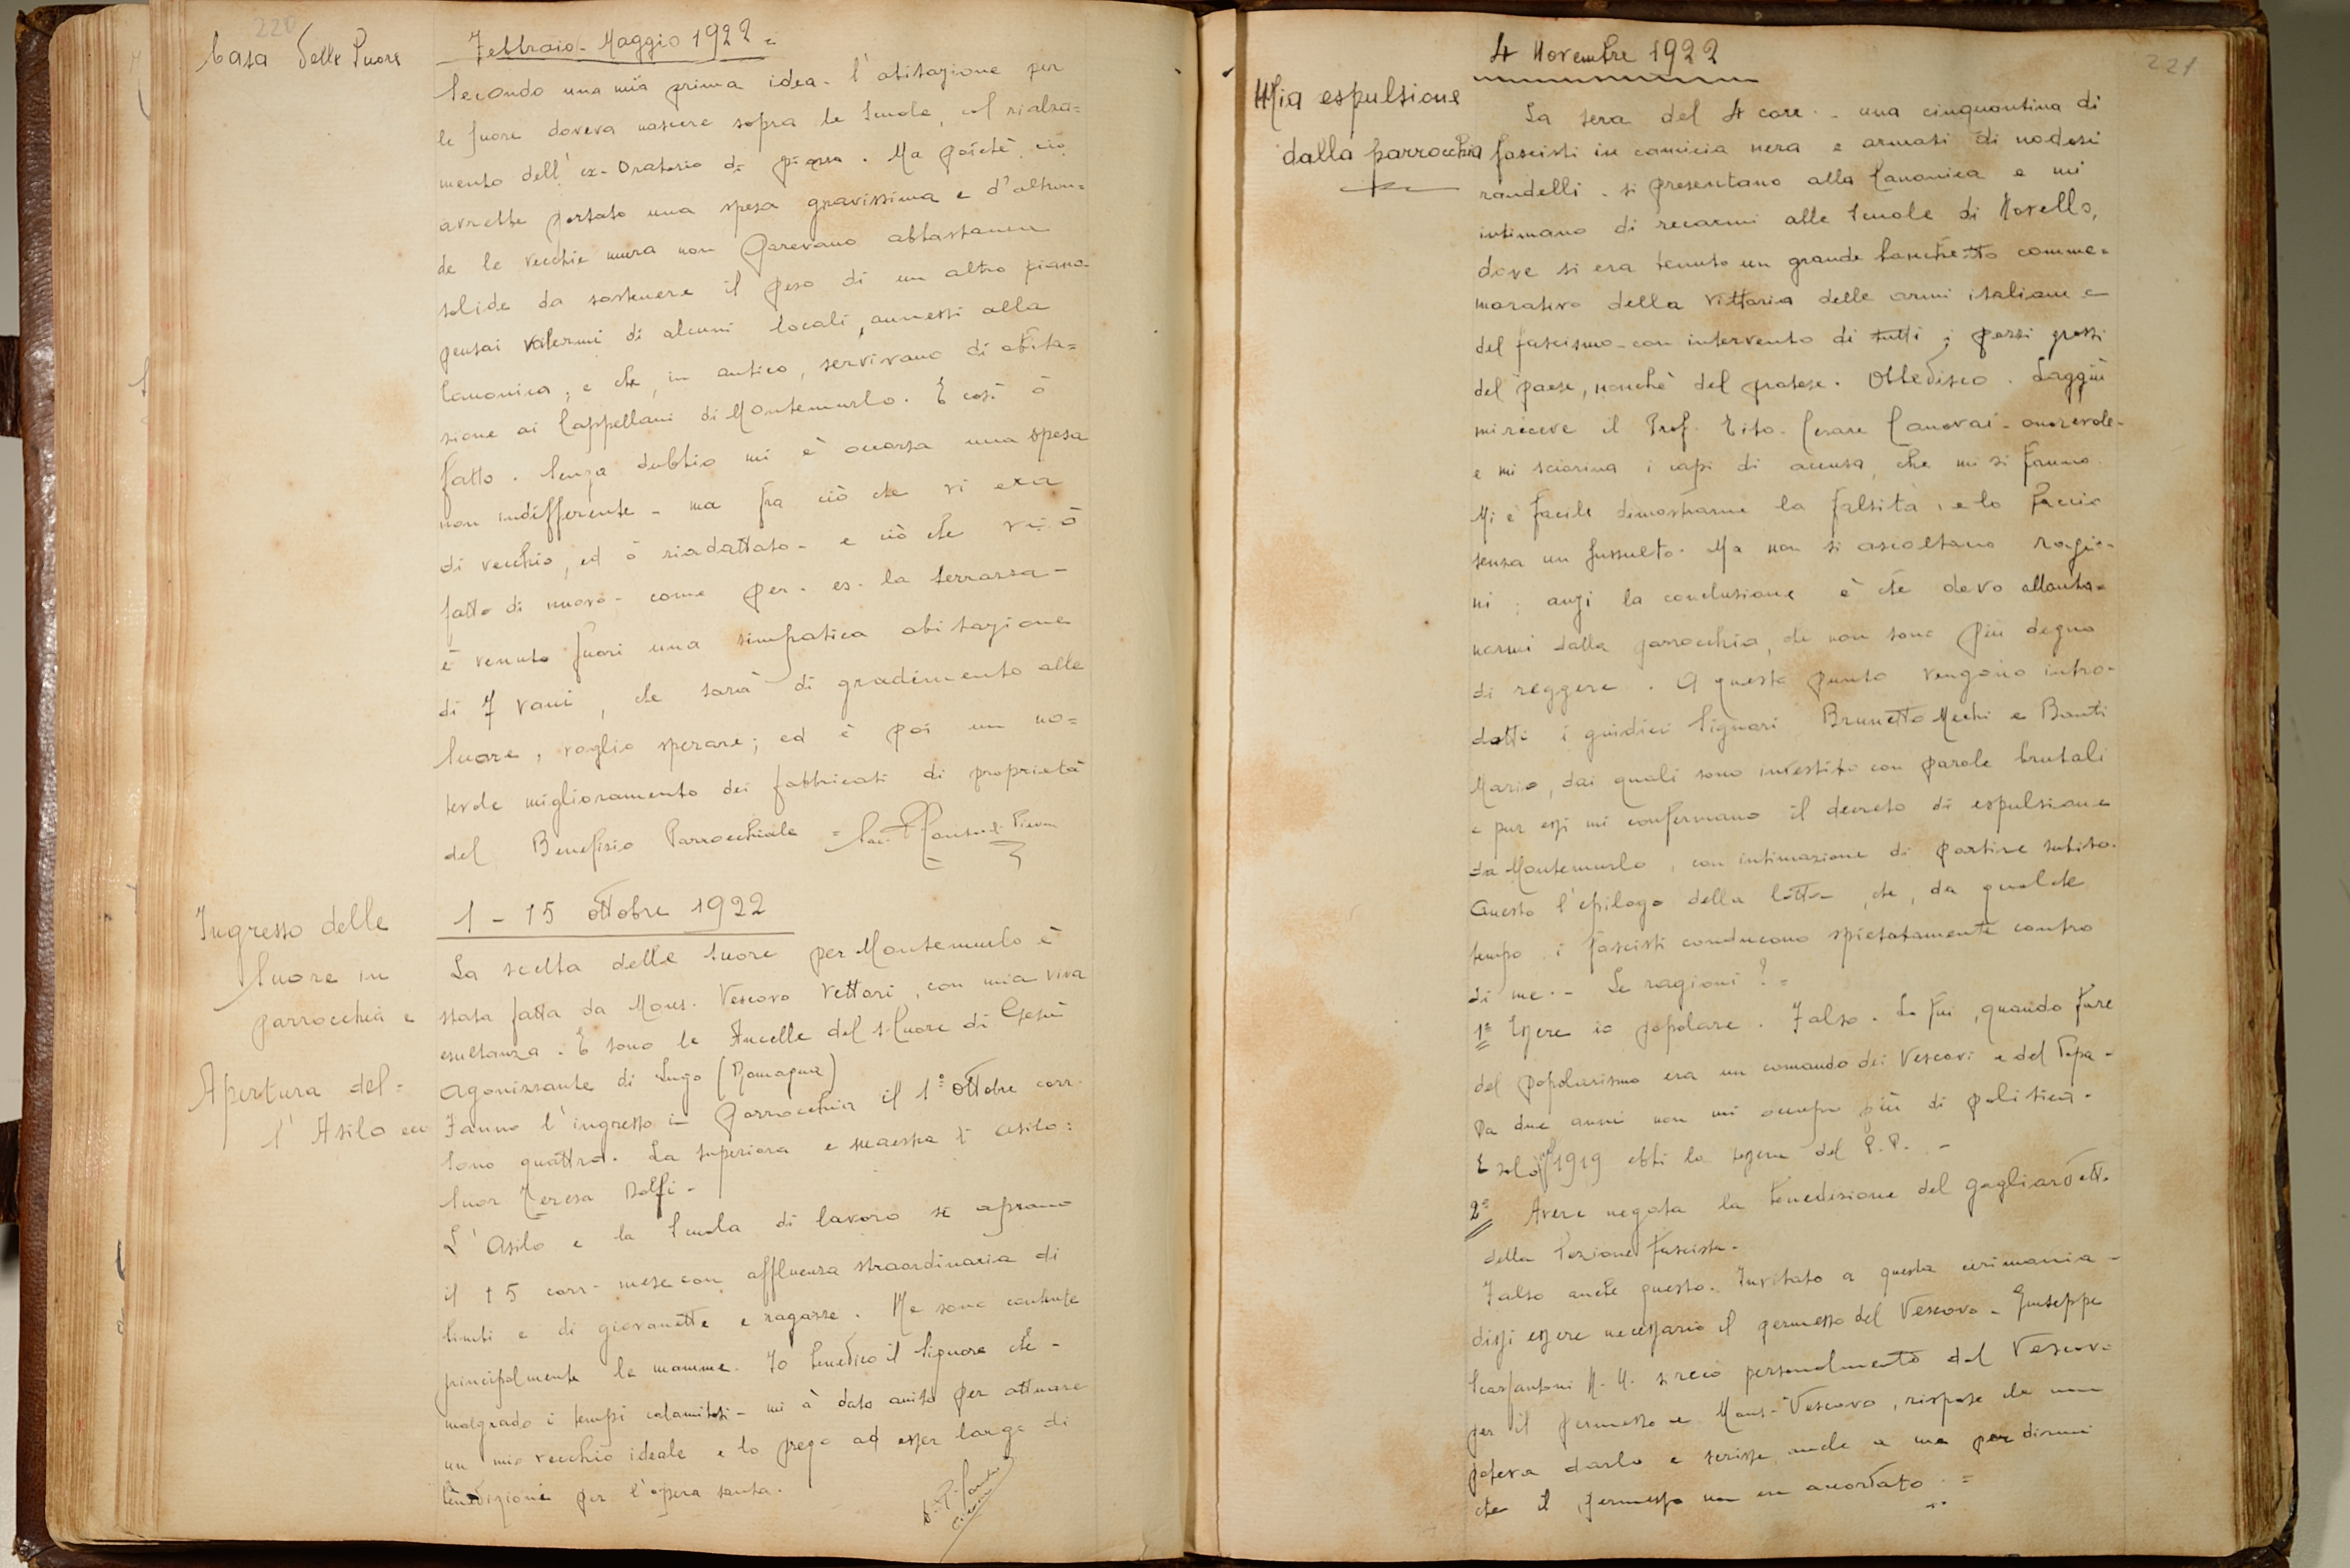 220
Casa delle Suore
Febbraio - Maggio 1922 =
Secondo una mia prima idea - l'abitazione per
le suore doveva nascere sopra le Scuole, col rialza=
mento dell'ex-Oratorio di piazza. Ma poichè ciò
avrebbe portato una spesa gravissima e d'altron=
de le vecchie mura non parevano abbastanza
solide da sostenere il peso di un altro piano -
pensai valermi di alcuni locali, annessi alla
Canonica, e che, in antico, servivano di abita=
zione ai Cappellani di Montemurlo. E così ò
fatto. Senza dubbio mi è occorsa una spesa
non indifferente - ma fra ciò che vi era
di vecchio, ed ò riadattato - e ciò che vi ò
fatto di nuovo - come per. es. la terrazza -
è venuto fuori una simpatica abitazione
di 7 vani, che sarà di gradimento alle
Suore, voglio sperare; ed è poi un no=
tevole miglioramento dei fabbricati di proprietà
del Benefizio Parrocchiale =
Ingresso delle
Suore in
parrocchia e
Apertura del=
l'Asilo ecc
1 - 15 ottobre 1922
La scelta delle suore per Montemurlo è
stata fatta da Mons. Vescovo Vettori, con mia viva
esultanza. E sono le Ancelle del S. Cuore di Gesù
agonizzante di Lugo (Romagna)
Fanno l'ingresso in parrocchia il 1º ottobre corr.
Sono quattro. La superiora e maestra d'asilo:
Suor Teresa Dolfi -
L'Asilo e la Scuola di lavoro si aprono
il 15 corr - mese con affluenza straordinaria di
bimbi e di giovanette e ragazze. Ne sono contente
principalmente le mamme. Io benedico il Signore che -
malgrado i tempi calamitosi - mi à dato aiuto per attuare
un mio vecchio ideale e lo prego ad esser largo di
benedizioni per l'opera santa.
221
4 Novembre 1922
Mia espulsione
dalla parrocchia
La sera del 4 corr. - una cinquantina di
fascisti in camicia nera e armati di nodosi
randelli - si presentano alla Canonica e mi
intimano di recarmi alle Scuole di Novello,
dove si era tenuto un grande banchetto comme=
morativo della Vittoria delle armi italiane e
del fascismo - con intervento di tutti i pezzi grossi
del paese, nonchè del pratese. Obbedisco. Laggiù
mi riceve il Prof. Tito - Cesare Canovai - onorevole -
e mi sciorina i capi di accusa, che mi si fanno.
Mi è facile dimostrarne la falsità, e lo faccio
senza un sussulto. Ma non si ascoltano ragio-
ni; anzi la conclusione è che devo allonta=
narmi dalla parrocchia, che non sono più degno
di reggere. A questo punto vengono intro-
dotti i giudici Signori Brunetto Mechi e Banti
Mario, dai quali sono investito con parole brutali
e pur essi mi confermano il decreto di espulsione
da Montemurlo, con intimazione di partire subito.
Questo l'epilogo della lotta, che, da qualche
tempo i fascisti conducono spietatamente contro
di me. - Le ragioni? =
1ª Essere io popolare. Falso. Lo fui, quando fare
del popolarismo era un comando dei Vescovi e del Papa -
Da due anni non mi occupo più di politica.
E solo nel 1919 ebbi la tessera del P.P. -
2ª Avere negata la benedizione del gagliardetto
della Sezione fascista.
Falso anche questo. Invitato a questa cerimonia -
dissi essere necessario il permesso del Vescovo - Giuseppe
Scarfantoni si recò personalmente dal Vescovo
per il permesso e Mons. Vescovo, rispose che non
poteva darlo e scrisse anche a me per dirmi
che il permesso non era accordato. =